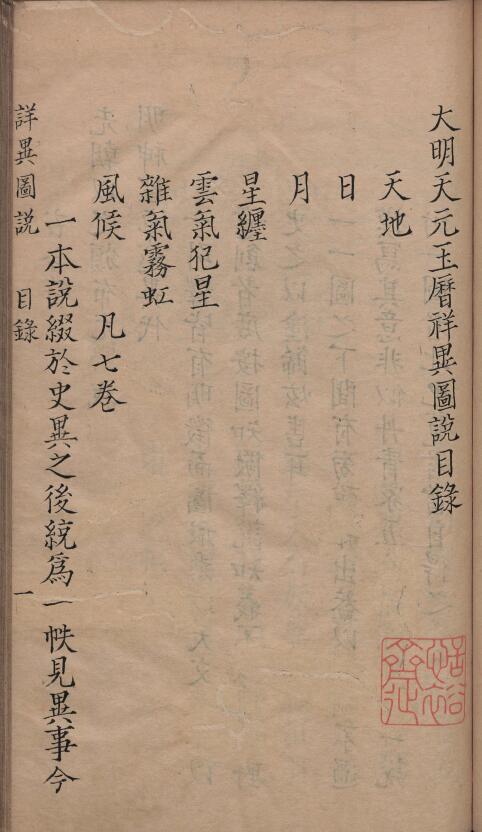 大明天元玉曆祥異圖說目錄
天地
日
月
星纏
雲氣犯星
雜氣霧虹
風候 凡七卷
一本說綴於史異之後統為一帙見異事今
詳異圖説 目錄 一